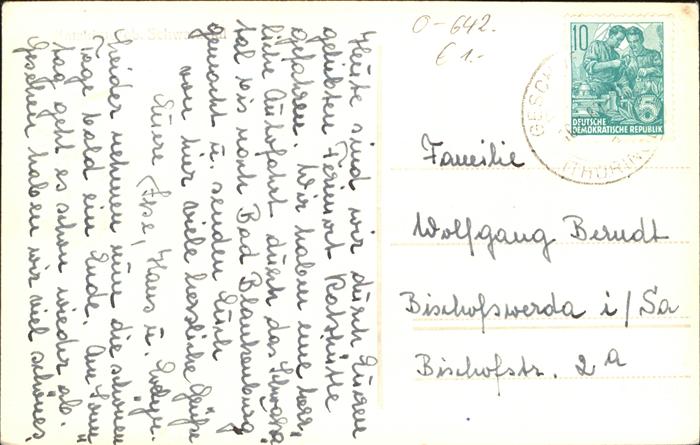 Heute sind wir durch Euren
geliebten Ferienort Katzhütte
gefahren. Wir haben eine herr,
liche Autofahrt durch das Schwarza
tal bis nach Bad Blankenburg
gemacht u. senden Euch
von hier viele herzliche Grüße
Eure Ilse, Hans u. Evelyn.
Leider nehmen nun die schönen
Tage bald ein Ende. Am Sonn
tag geht es schon wieder ab.
Gesehen haben wir viel schönes.
O-642.
€ 1.-
10
5
DEUTSCHE
DEMOKRATISCHE REPUBLIK
(THÜRIN
Familie
Wolfgang Berndt
Bischofswerda i/Sa
Bischofstr. 2a